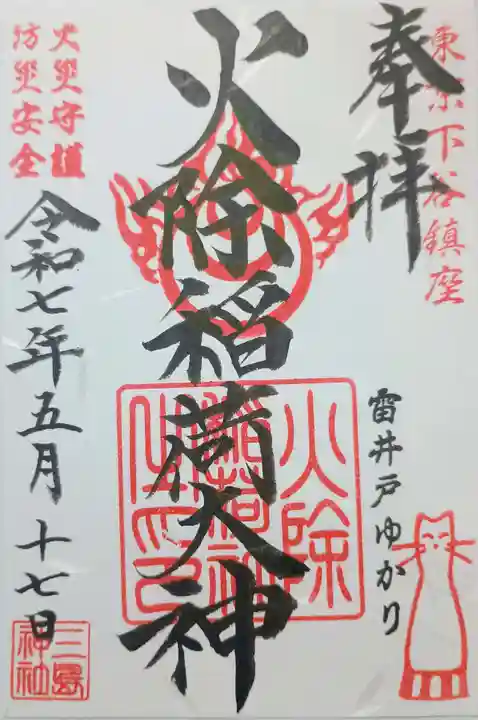 東京下谷鎮座
奉拝
雷井戸ゆかり
火除稲荷大神
火除
稲荷神
火災守護
防災安全
令和七年五月十七日
三島
神社